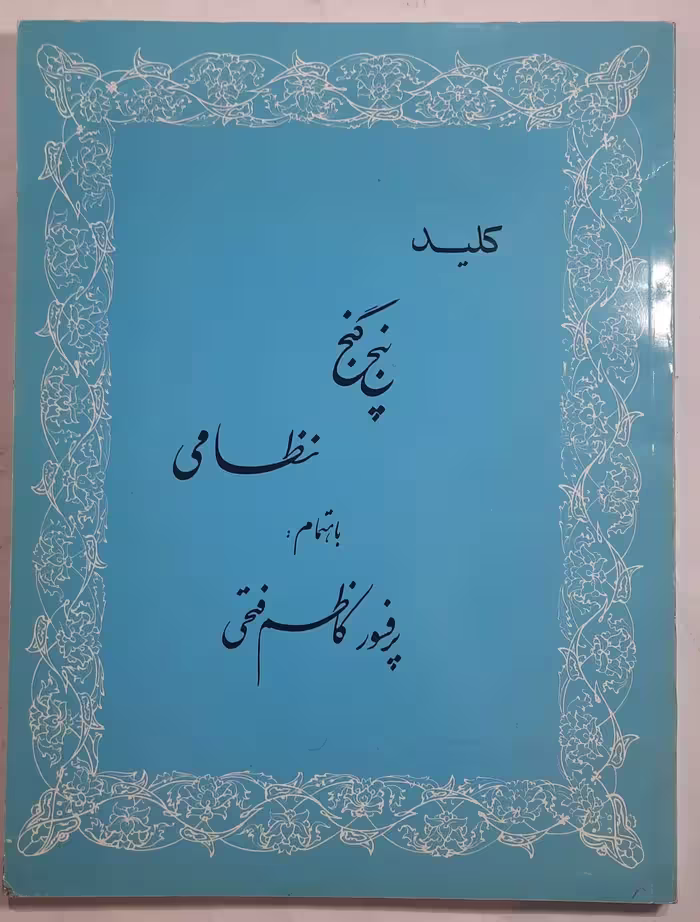 کلید
پنج گنج
نظامی
باهتمام :
پرفسور کاظم فتحی